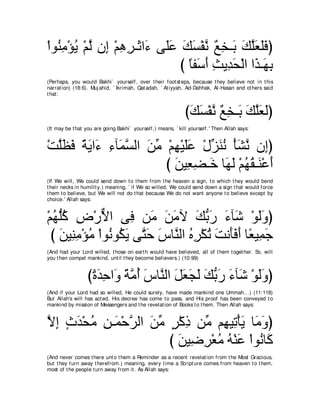 ﴿فَلَعَلَّكَ بَـخِعٌ نَّفْسَكَ عَلَى ءَاثَـرِهِمْ إِن لَّمْ يُؤْمِنُواْ
بِهَـذَا الْحَدِيثِ أَسَفاً ﴾
(Perhaps, you would Bakhi` yourself, over their footsteps, because they believe not in this
narration) (18:6). Mujahid, `Ikrimah, Qatadah, `Atiyyah, Ad-Dahhak, Al-Hasan and others said
that:
﴿لَعَلَّكَ بَـخِعٌ نَّفْسَكَ﴾
(It may be that you are going Bakhi` yourself,) means, `kill yourself.' Then Allah says:
﴿إِن نَّشَأْ نُنَزِّلْ عَلَيْهِمْ مِّنَ السَّمَآءِ ءَايَةً فَظَلَّتْ
أَعْنَـقُهُمْ لَهَا خَـضِعِينَ ﴾
(If We will, We could send down to them from the heaven a sign, to which they would bend
their necks in humility.) meaning, `if We so willed, We could send down a sign that would force
them to believe, but We will not do that because We do not want anyone to believe except by
choice.' Allah says:
﴿وَلَوْ شَآءَ رَبُّكَ لآمَنَ مَن فِى الاٌّرْضِ كُلُّهُمْ
جَمِيعًا أَفَأَنتَ تُكْرِهُ النَّاسَ حَتَّى يَكُونُواْ مُؤْمِنِينَ ﴾
(And had your Lord willed, those on earth would have believed, all of them together. So, will
you then compel mankind, until they become believers.) (10:99)
﴿وَلَوْ شَآءَ رَبُّكَ لَجَعَلَ النَّاسَ أُمَّةً وَاحِدَةً﴾
(And if your Lord had so willed, He could surely, have made mankind one Ummah...) (11:118)
But Allah's will has acted, His decree has come to pass, and His proof has been conveyed to
mankind by mission of Messengers and the revelation of Books to them. Then Allah says:
﴿وَمَا يَأْتِيهِم مِّن ذِكْرٍ مِّنَ الرَّحْمَـنِ مُحْدَثٍ إِلاَّ
كَانُواْ عَنْهُ مُعْرِضِينَ ﴾
(And never comes there unto them a Reminder as a recent revelation from the Most Gracious,
but they turn away therefrom.) meaning, every time a Scripture comes from heaven to them,
most of the people turn away from it. As Allah says: